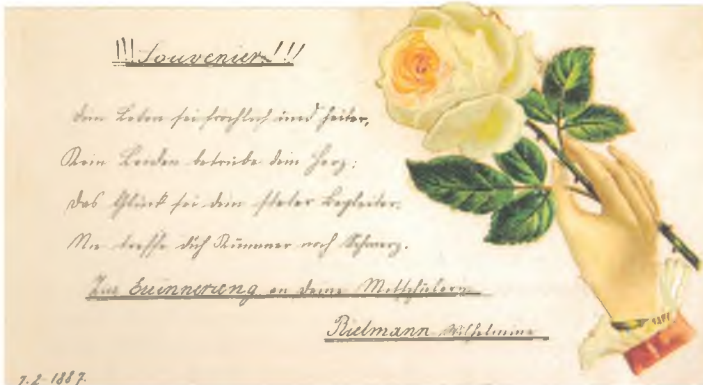 !!! Souvenier!!!
Dein Leben sei froehlich und heiter,
Kein Leiden betrübe dein Herz;
Das Glück sei dein steter Begleiter.
Nie treffe dich Kummer noch Schmerz.
Zur Erinnerung an deine Mitschülerin
Bielmann Wilhelmine
7.2.1887.